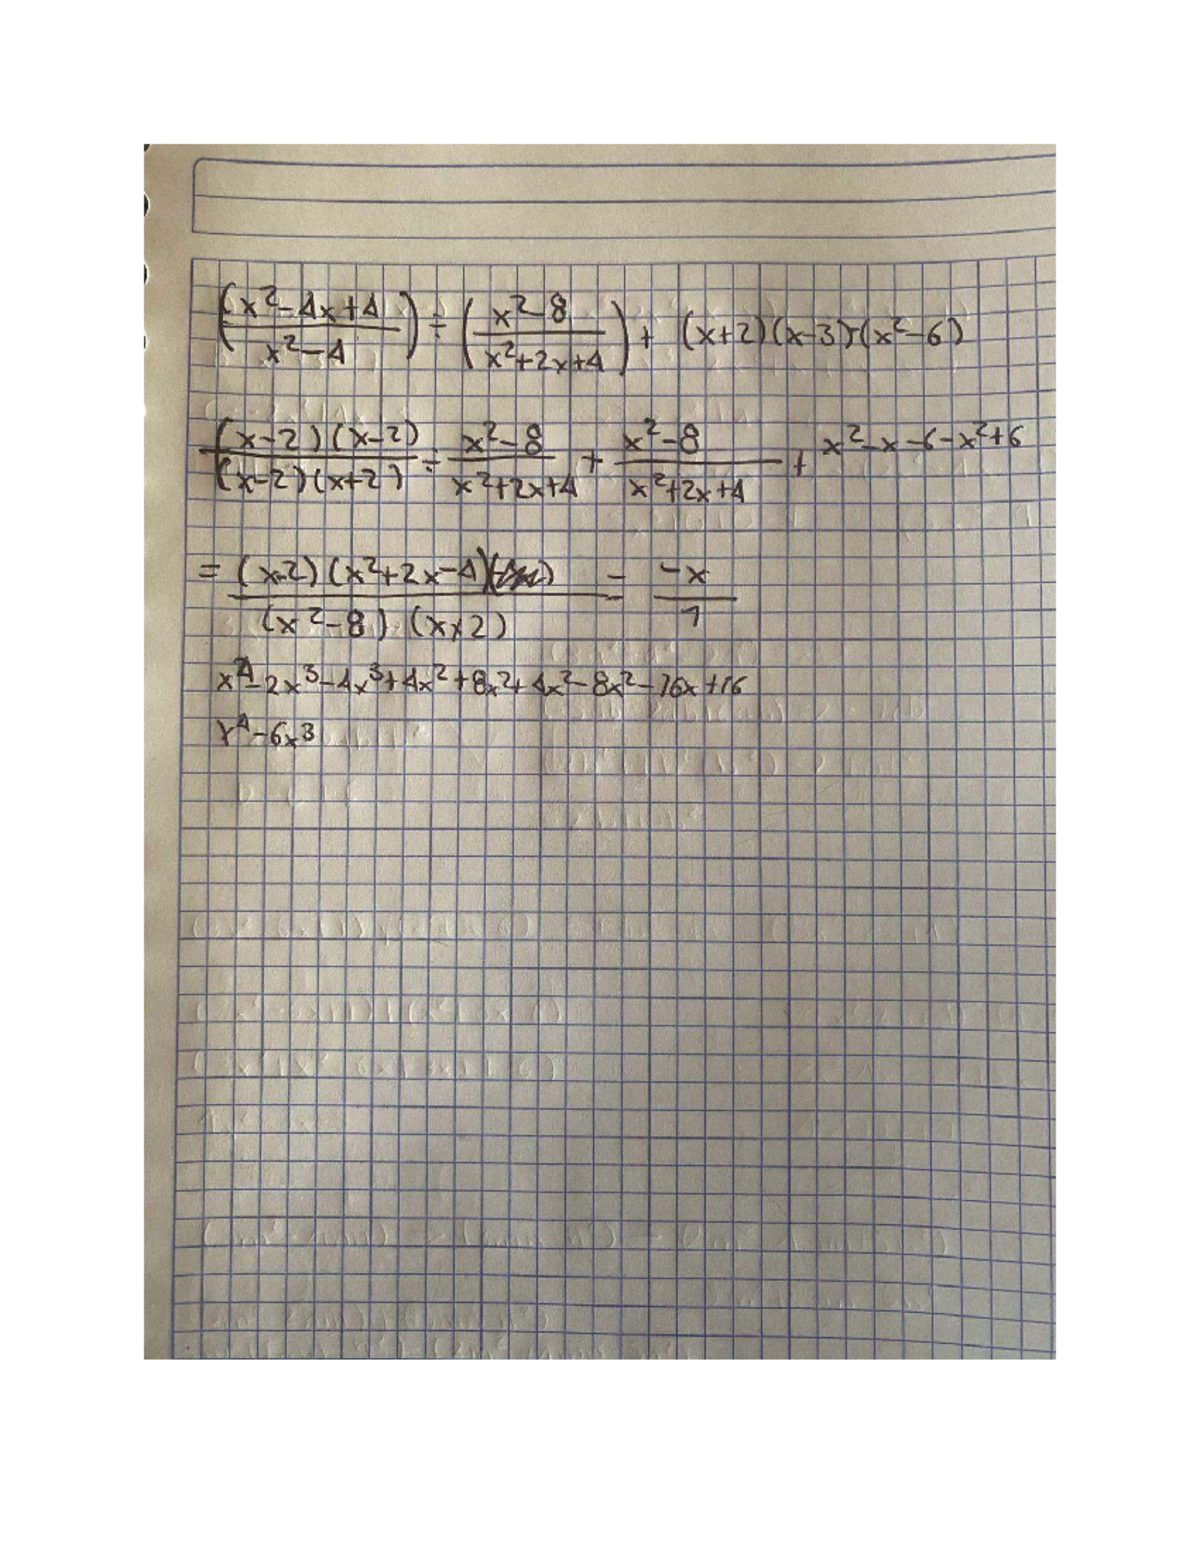 (x²-4x+4 / x²-4) ÷ (x²-8 / x²+2x+4) + (x+2)(x-3)-(x²-6)
(x-2)(x-2) / (x-2)(x+2) ÷ x²-8 / x²+2x+4 + x²-8 / x²+2x+4 + x²-x-6-x²+6
= (x-2)(x²+2x-4) / (x²-8)·(x+2) - -x / 1
x⁴-2x³-4x³+4x²+8x²+4x²-8x²-16x+16
x⁴-6x³